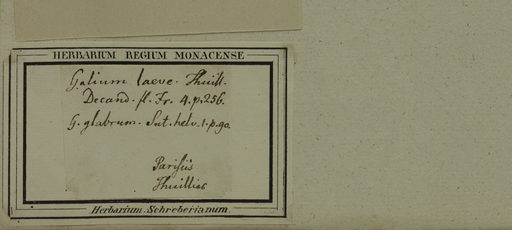 HERBARIUM REGIUM MONACENSE
Galium laeve. Thuill.
Decand. fl. Fr. 4. p. 256.
G. glabrum. Sut. helv. 1. p. 90.
Parisiis
Thuillier
Herbarium Schreberianum.